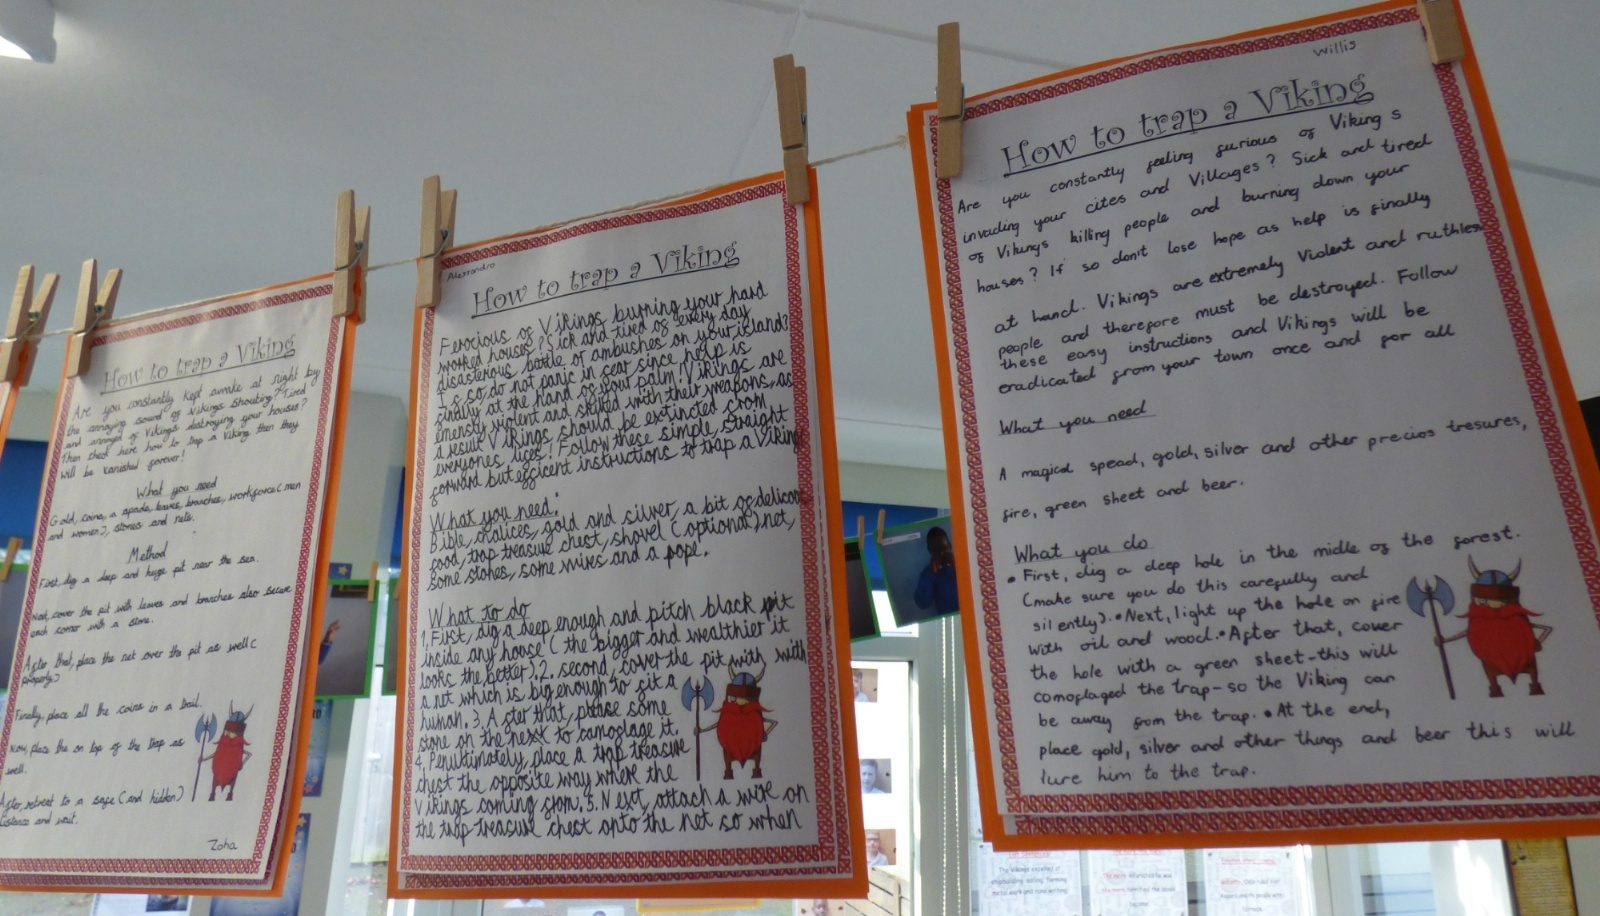 How to trap a Viking
Are you constantly kept awake at night by
the annoying sound of Vikings shouting? Tired
and annoyed of Vikings distroying your houses?
Then check here how to trap a Viking then they
will be vanished forever!
What you need
Gold, coins, a spade, leaves, branches, workforce (men
and women), stones and nets.
Method
First, dig a deep and huge pit near the sea.
Next, cover the pit with leaves and branches also secure
each corner with a stone.
After that, place the net over the pit as well (
properly)
Finally, place all the coins in a trail.
Now, place the on top of the trap as
well.
After, retreat to a safe (and hidden)
distance and wait.
Zoha
Alessandro
How to trap a Viking
Ferocious of Vikings burning your hard
worked houses? Sick and tired of every day
disasterous battle of ambushes on your island?
If so, do not panic in fear since help is
finally at the hand of your palm! Vikings are
emensly violent and skilled with their weapons, as
a result Vikings should be extincted from
everyones lifes! Follow these simple, straight
forward but efficent instructions to trap a Viking!
What you need:
Bible, chalices, gold and silver, a bit of delicous
food, trap treasure chest, shovel (optional) net,
some stones, some wires and a pope.
What to do
1. First, dig a deep enough and pitch black pit
inside any house (the bigger and wealthier it
looks the better). 2. second, cover the pit with with
a net which is big enough to fit a
human. 3. After that, please some
stone on the next to camoflage it.
4. Penultimately, place a trap treasure
chest the opposite way where the
Vikings coming from. 5. Next, attach a wire on
the trap treasure chest onto the net so when
Willis
How to trap a Viking
Are you constantly feeling furious of Vikings
invading your cites and Villages? Sick and tired
of Vikings killing people and burning down your
houses? If so don't lose hope as help is finally
at hand. Vikings are extremely Violent and ruthless
people and therefore must be destroyed. Follow
these easy instructions and Vikings will be
eradicated from your town once and for all
What you need
A magical spead, gold, silver and other precios tresures,
fire, green sheet and beer.
What you do
• First, dig a deep hole in the midle of the forest.
(make sure you do this carefully and
silently). • Next, light up the hole on fire
with oil and wood. • After that, cover
the hole with a green sheet - this will
comoflaged the trap - so the Viking can
be away from the trap. • At the end,
place gold, silver and other things and beer this will
lure him to the trap.